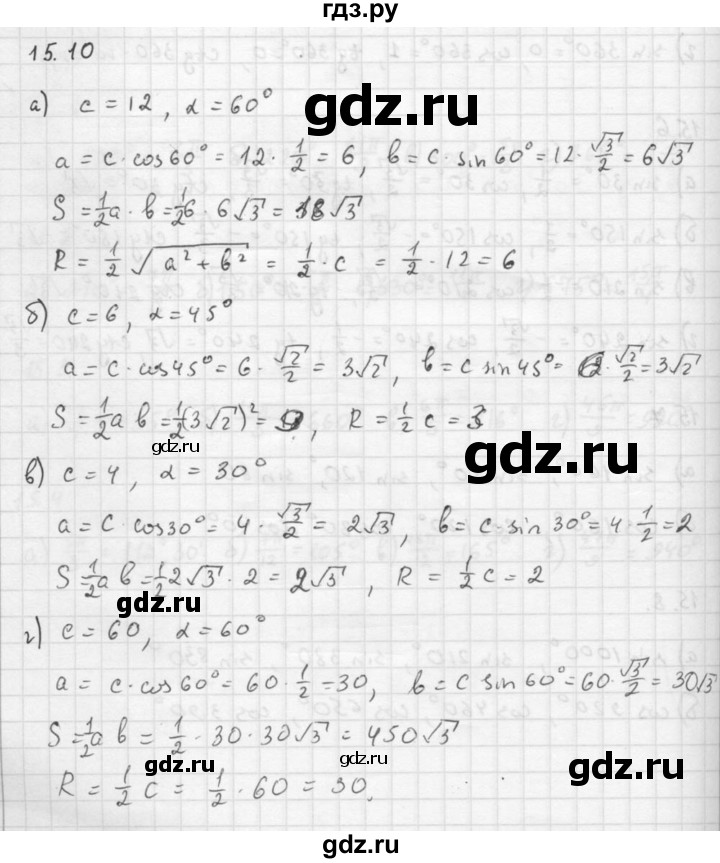 гдз.ру
15.10
а) c = 12, α = 60°
gdz.ru
a = c · cos60° = 12 · 1/2 = 6, b = c · sin60° = 12 · √3/2 = 6√3
S = 1/2 a · b = 1/2 6 · 6√3 = 18√3
R = 1/2 √(a² + b²) = 1/2 · c = 1/2 · 12 = 6
gdz.ru
б) c = 6, α = 45°
a = c · cos45° = 6 · √2/2 = 3√2, b = c sin45° = 6 · √2/2 = 3√2
S = 1/2 a b = 1/2 (3√2)² = 9, R = 1/2 c = 3
gdz.ru
в) c = 4, α = 30°
gdz.ru
a = c · cos30° = 4 · √3/2 = 2√3, b = c · sin30° = 4 · 1/2 = 2
S = 1/2 a b = 1/2 2√3 · 2 = 2√3, R = 1/2 c = 2
gdz.ru
г) c = 60, α = 60°
gdz.ru
a = c · cos60° = 60 · 1/2 = 30, b = c sin60° = 60 · √3/2 = 30√3
S = 1/2 a b = 1/2 · 30 · 30√3 = 450√3
gdz.ru
R = 1/2 c = 1/2 · 60 = 30.
gdz.ru
gdz.ru